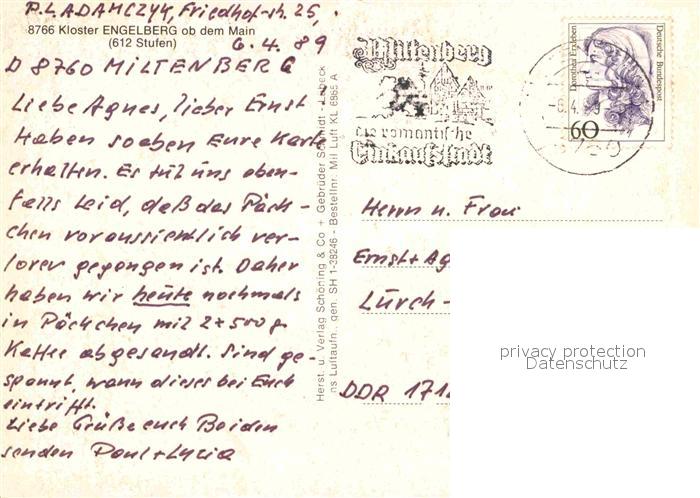 P. LADAMCZYK, Friedhof-str. 25,
8766 Kloster ENGELBERG ob dem Main
(612 Stufen)
6. 4. 89
D 8760 MILTENBERG
Liebe Agnes, lieber Ernst!
Haben soeben Eure Karte
erhalten. Es tut uns eben-
falls leid, daß das Päck-
chen voraussichtlich ver-
loren gegangen ist. Daher
haben wir heute nochmals
in Päckchen mit 2 x 500 g
Kaffee abgesandt. Sind ge-
spannt, wann dieses bei Euch
eintrifft.
Liebe Grüße euch Beiden
senden Paul + Lucia
Herst. u. Verlag Schöning & Co + Gebrüder Schmidt - Lübeck
ns Luftaufn., gen. SH 1-38246 - Bestellnr. Mil Luft KL 6865 A
Miltenberg
die romantische
Einkaufsstadt
Dorothea Erxleben
Deutsche Bundespost
60
-6.4.89
Herrn u. Frau
Ernst + Ag
Lürch-
DDR 171
privacy protection
Datenschutz